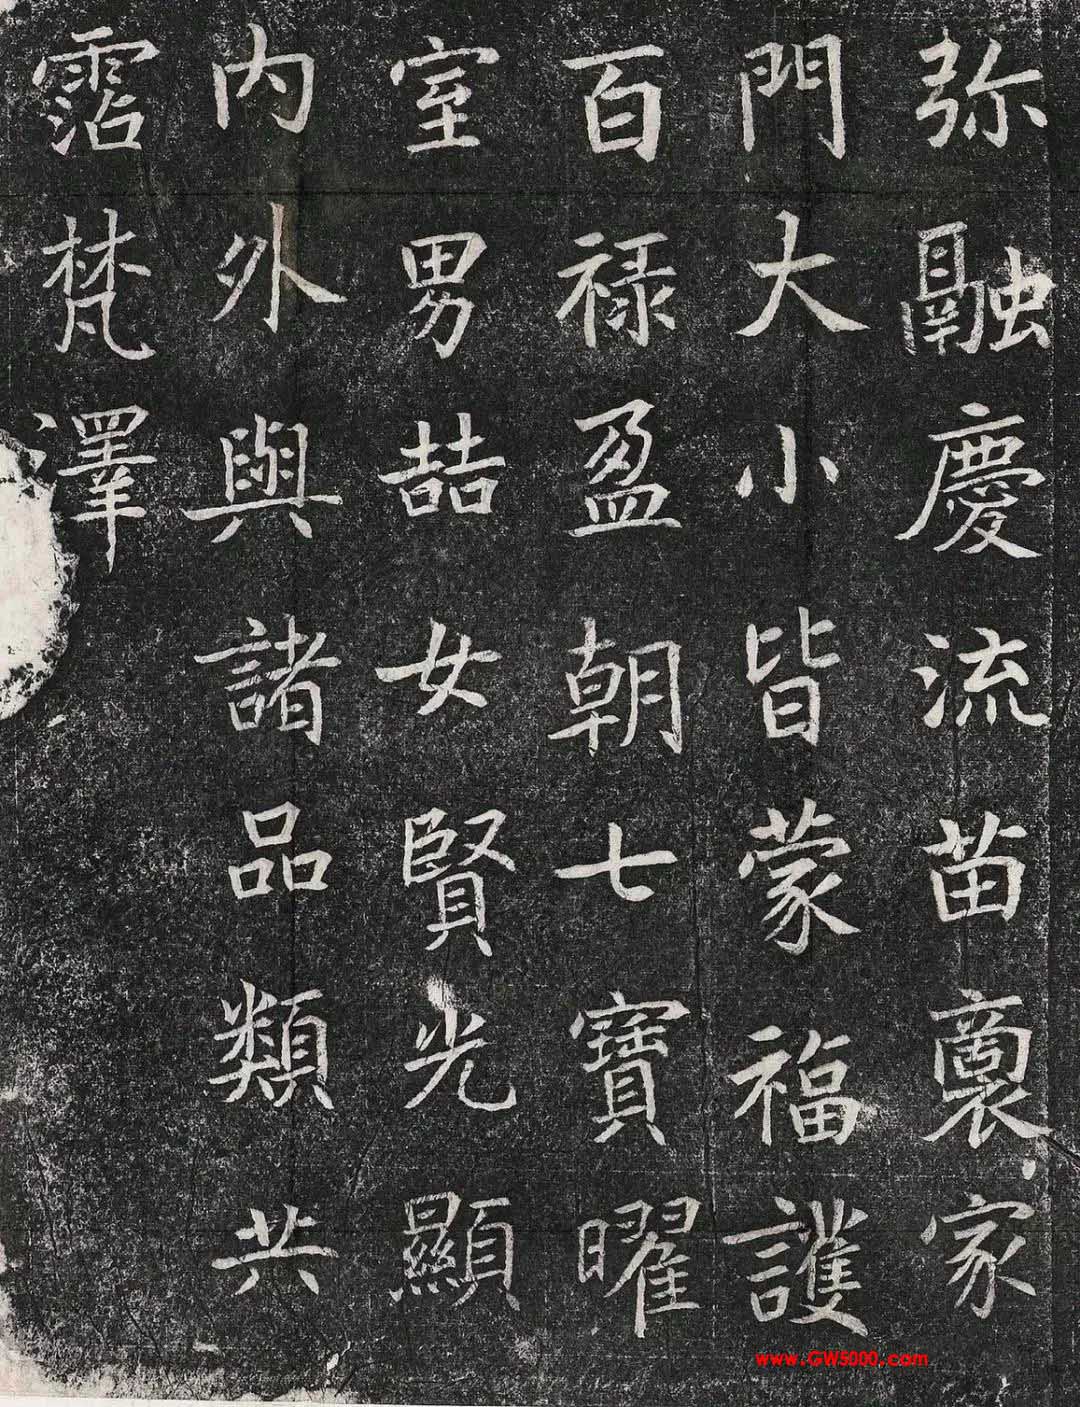 弥融慶流苗裔家
門大小皆蒙福護
百禄盈朝七寶曜
室男喆女賢光顯
内外與諸品類共
霑梵澤
www.GW5000.com